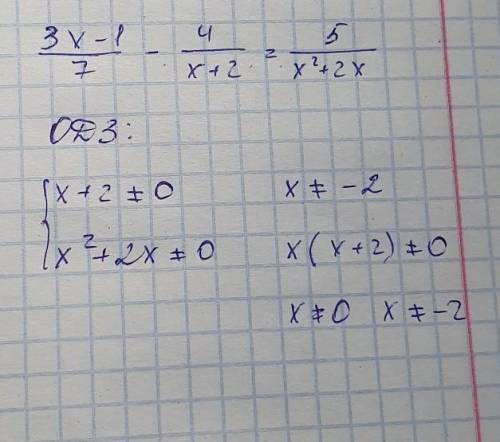 (3x-1)/7 - 4/(x+2) = 5/(x²+2x)
ОДЗ:
{ x+2 ≠ 0    x ≠ -2
x²+2x ≠ 0    x(x+2) ≠ 0
x ≠ 0    x ≠ -2